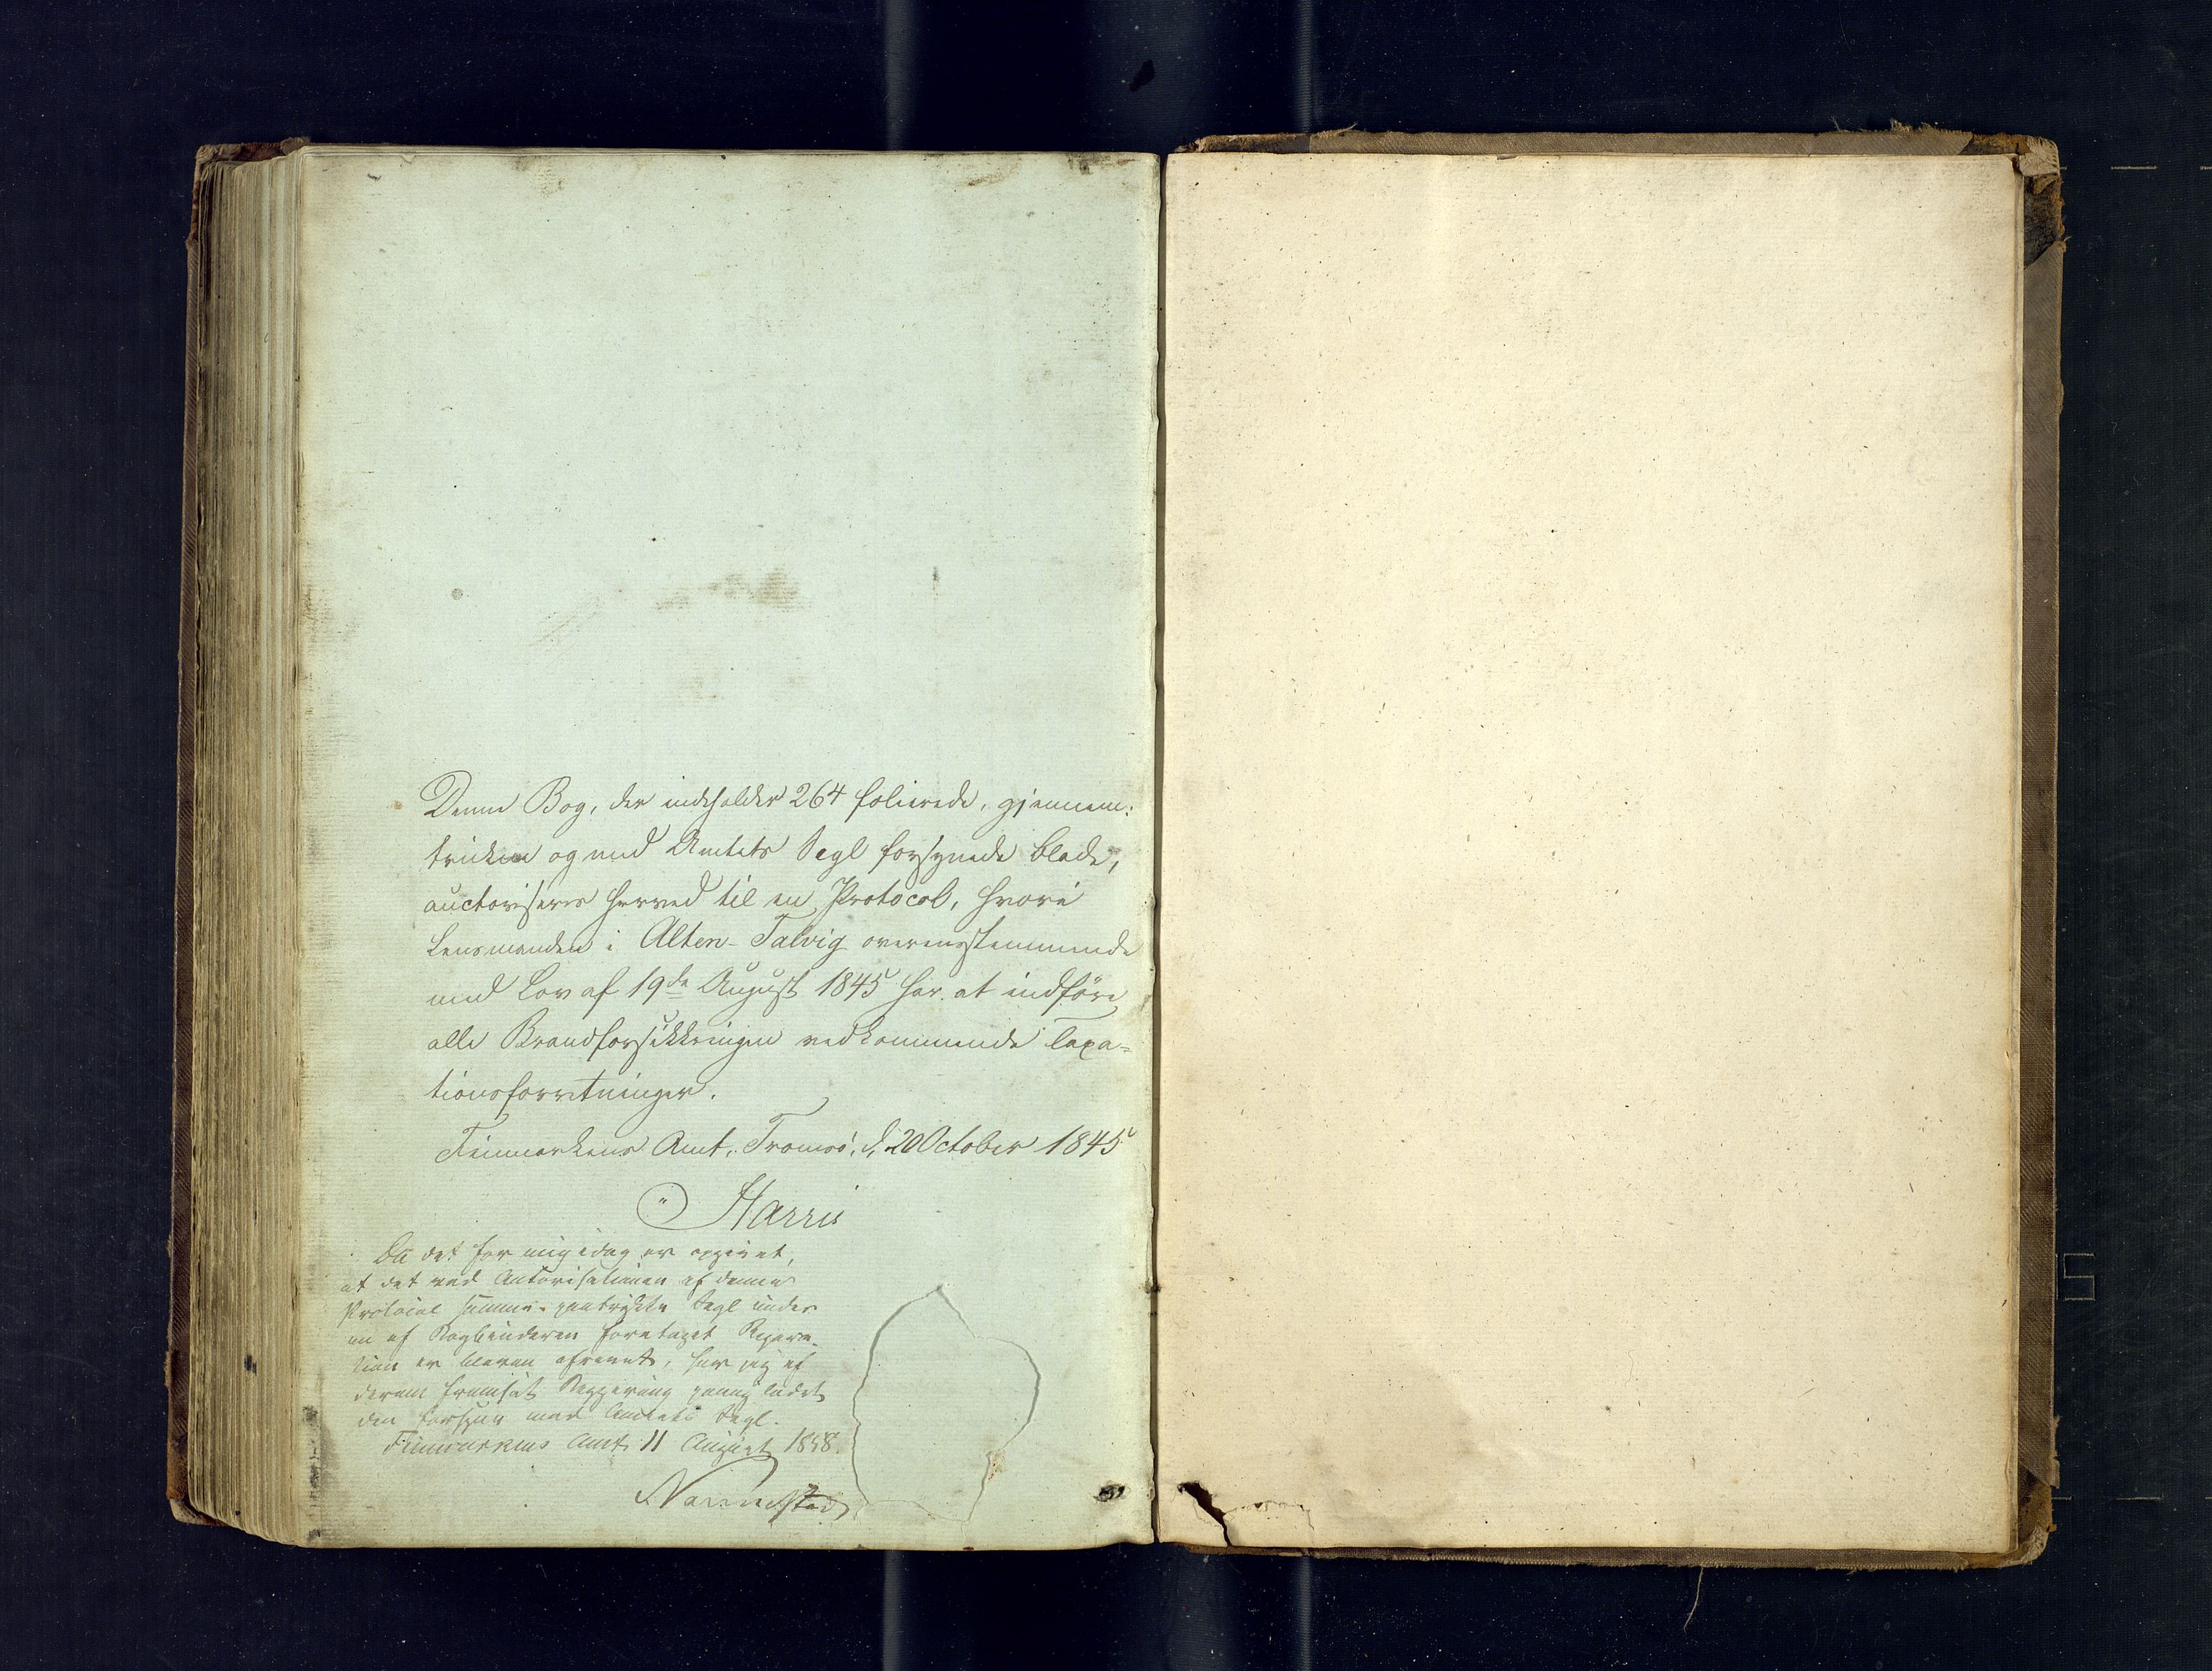 Denne Bog, der indeholder 264 folierede, gjennem:
trukne og med Amtets Segl forsynede blade,
auctoriseres herved til en Protocol, hvori
Lensmanden i Alten-Talvig overensstemmende
med Lov af 19de August 1845 har at indföre
alle Brandforsikkringen vedkommende Taxa=
tionsforretninger.
Finmarkens Amt, Tromsö, d. 20 October 1845
Harris
Da det for mig idag er opgivet,
at det ved Autorisationen af denne
Protocol paatrykte Segl under
en af Bogbinderen foretaget Repara-
tion er bleven afrevet, har jeg
derom fremsat Begjering ladet
den forsyne med Amtets Segl.
Finmarkens Amt 11 August 1858.